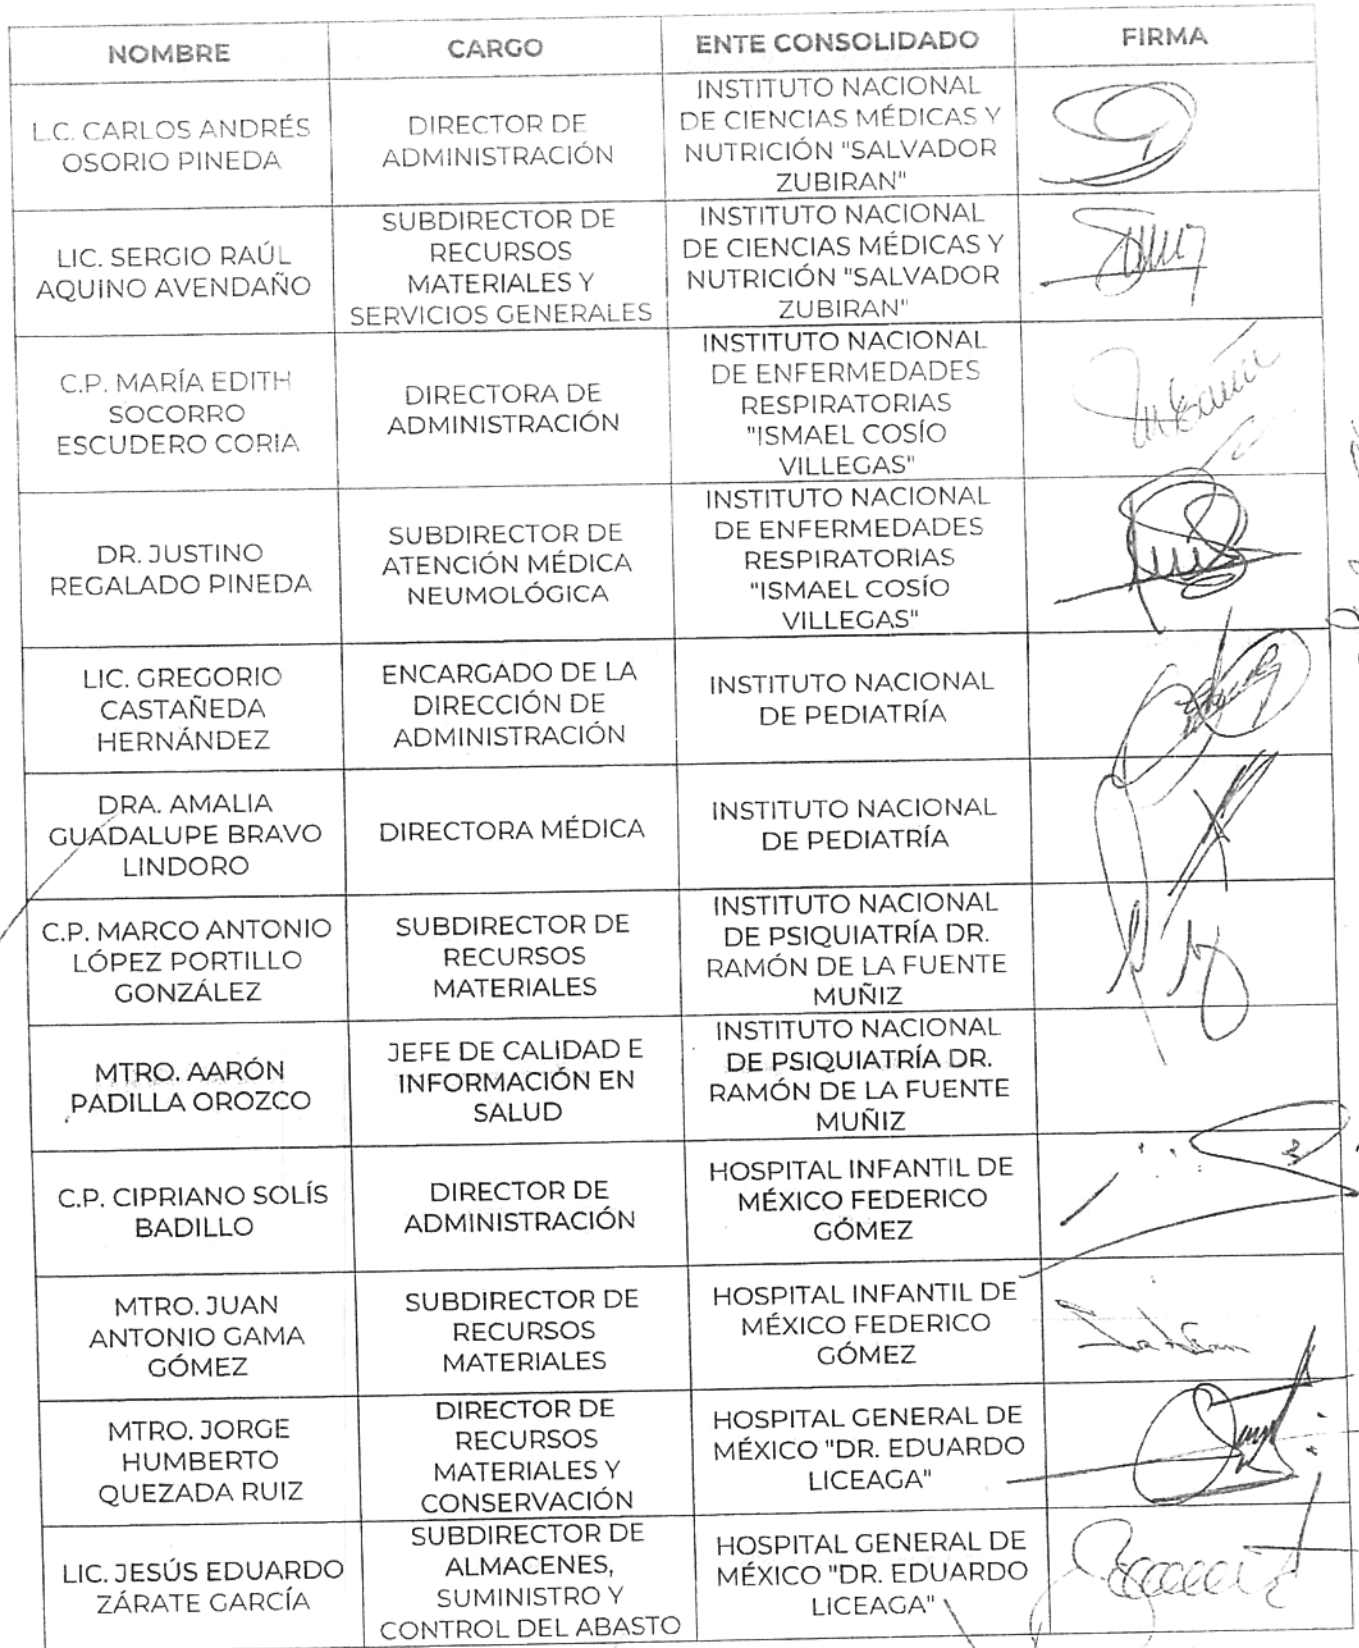 NOMBRE
CARGO
ENTE CONSOLIDADO
FIRMA
L.C. CARLOS ANDRÉS
OSORIO PINEDA
DIRECTOR DE
ADMINISTRACIÓN
INSTITUTO NACIONAL
DE CIENCIAS MÉDICAS Y
NUTRICIÓN "SALVADOR
ZUBIRAN"
LIC. SERGIO RAÚL
AQUINO AVENDAÑO
SUBDIRECTOR DE
RECURSOS
MATERIALES Y
SERVICIOS GENERALES
INSTITUTO NACIONAL
DE CIENCIAS MÉDICAS Y
NUTRICIÓN "SALVADOR
ZUBIRAN"
C.P. MARÍA EDITH
SOCORRO
ESCUDERO CORIA
DIRECTORA DE
ADMINISTRACIÓN
INSTITUTO NACIONAL
DE ENFERMEDADES
RESPIRATORIAS
"ISMAEL COSÍO
VILLEGAS"
DR. JUSTINO
REGALADO PINEDA
SUBDIRECTOR DE
ATENCIÓN MÉDICA
NEUMOLÓGICA
INSTITUTO NACIONAL
DE ENFERMEDADES
RESPIRATORIAS
"ISMAEL COSÍO
VILLEGAS"
LIC. GREGORIO
CASTAÑEDA
HERNÁNDEZ
ENCARGADO DE LA
DIRECCIÓN DE
ADMINISTRACIÓN
INSTITUTO NACIONAL
DE PEDIATRÍA
DRA. AMALIA
GUADALUPE BRAVO
LINDORO
DIRECTORA MÉDICA
INSTITUTO NACIONAL
DE PEDIATRÍA
C.P. MARCO ANTONIO
LÓPEZ PORTILLO
GONZÁLEZ
SUBDIRECTOR DE
RECURSOS
MATERIALES
INSTITUTO NACIONAL
DE PSIQUIATRÍA DR.
RAMÓN DE LA FUENTE
MUÑIZ
MTRO. AARÓN
PADILLA OROZCO
JEFE DE CALIDAD E
INFORMACIÓN EN
SALUD
INSTITUTO NACIONAL
DE PSIQUIATRÍA DR.
RAMÓN DE LA FUENTE
MUÑIZ
C.P. CIPRIANO SOLÍS
BADILLO
DIRECTOR DE
ADMINISTRACIÓN
HOSPITAL INFANTIL DE
MÉXICO FEDERICO
GÓMEZ
MTRO. JUAN
ANTONIO GAMA
GÓMEZ
SUBDIRECTOR DE
RECURSOS
MATERIALES
HOSPITAL INFANTIL DE
MÉXICO FEDERICO
GÓMEZ
MTRO. JORGE
HUMBERTO
QUEZADA RUIZ
DIRECTOR DE
RECURSOS
MATERIALES Y
CONSERVACIÓN
HOSPITAL GENERAL DE
MÉXICO "DR. EDUARDO
LICEAGA"
LIC. JESÚS EDUARDO
ZÁRATE GARCÍA
SUBDIRECTOR DE
ALMACENES,
SUMINISTRO Y
CONTROL DEL ABASTO
HOSPITAL GENERAL DE
MÉXICO "DR. EDUARDO
LICEAGA"